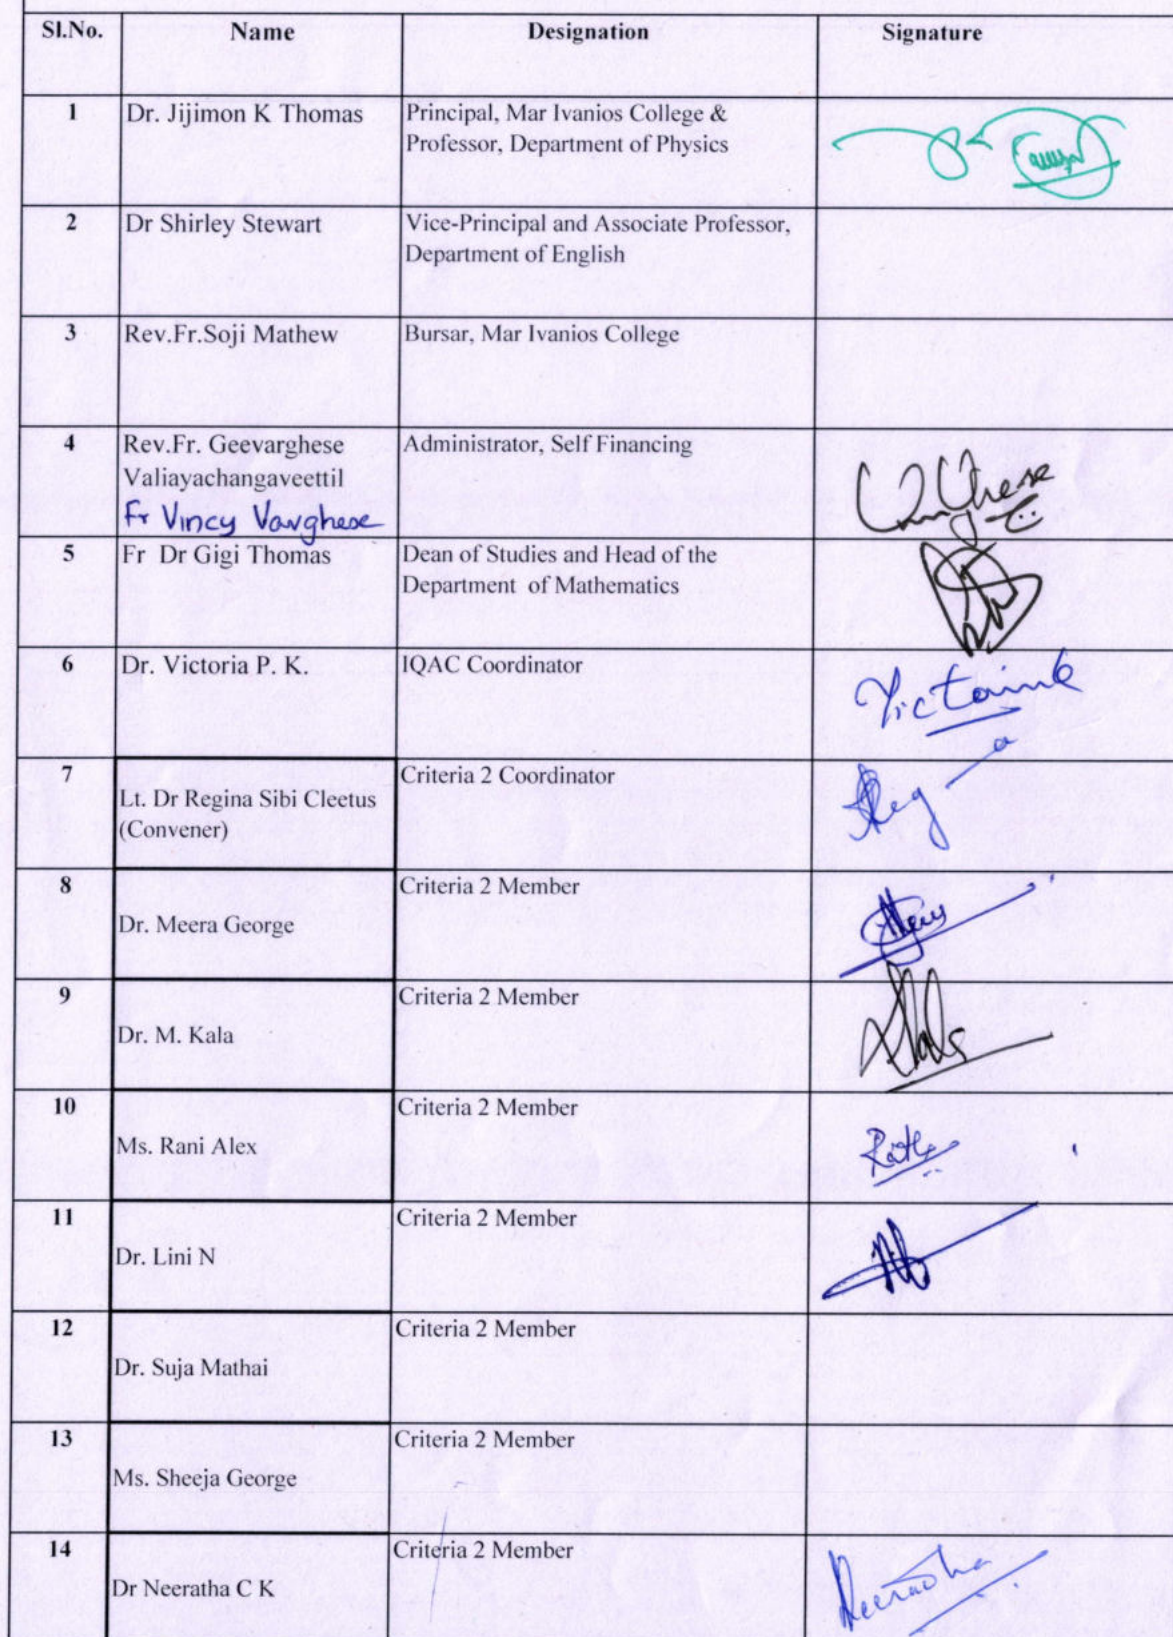 Sl.No. Name Designation Signature
1 Dr. Jijimon K Thomas Principal, Mar Ivanios College &
Professor, Department of Physics
2 Dr Shirley Stewart Vice-Principal and Associate Professor,
Department of English
3 Rev.Fr.Soji Mathew Bursar, Mar Ivanios College
4 Rev.Fr. Geevarghese Administrator, Self Financing
Valiayachangaveettil
Fr Vincy Varghese
5 Fr Dr Gigi Thomas Dean of Studies and Head of the
Department of Mathematics
6 Dr. Victoria P. K. IQAC Coordinator
7 Criteria 2 Coordinator
Lt. Dr Regina Sibi Cleetus
(Convener)
8 Criteria 2 Member
Dr. Meera George
9 Criteria 2 Member
Dr. M. Kala
10 Criteria 2 Member
Ms. Rani Alex
11 Criteria 2 Member
Dr. Lini N
12 Criteria 2 Member
Dr. Suja Mathai
13 Criteria 2 Member
Ms. Sheeja George
14 Criteria 2 Member
Dr Neeratha C K